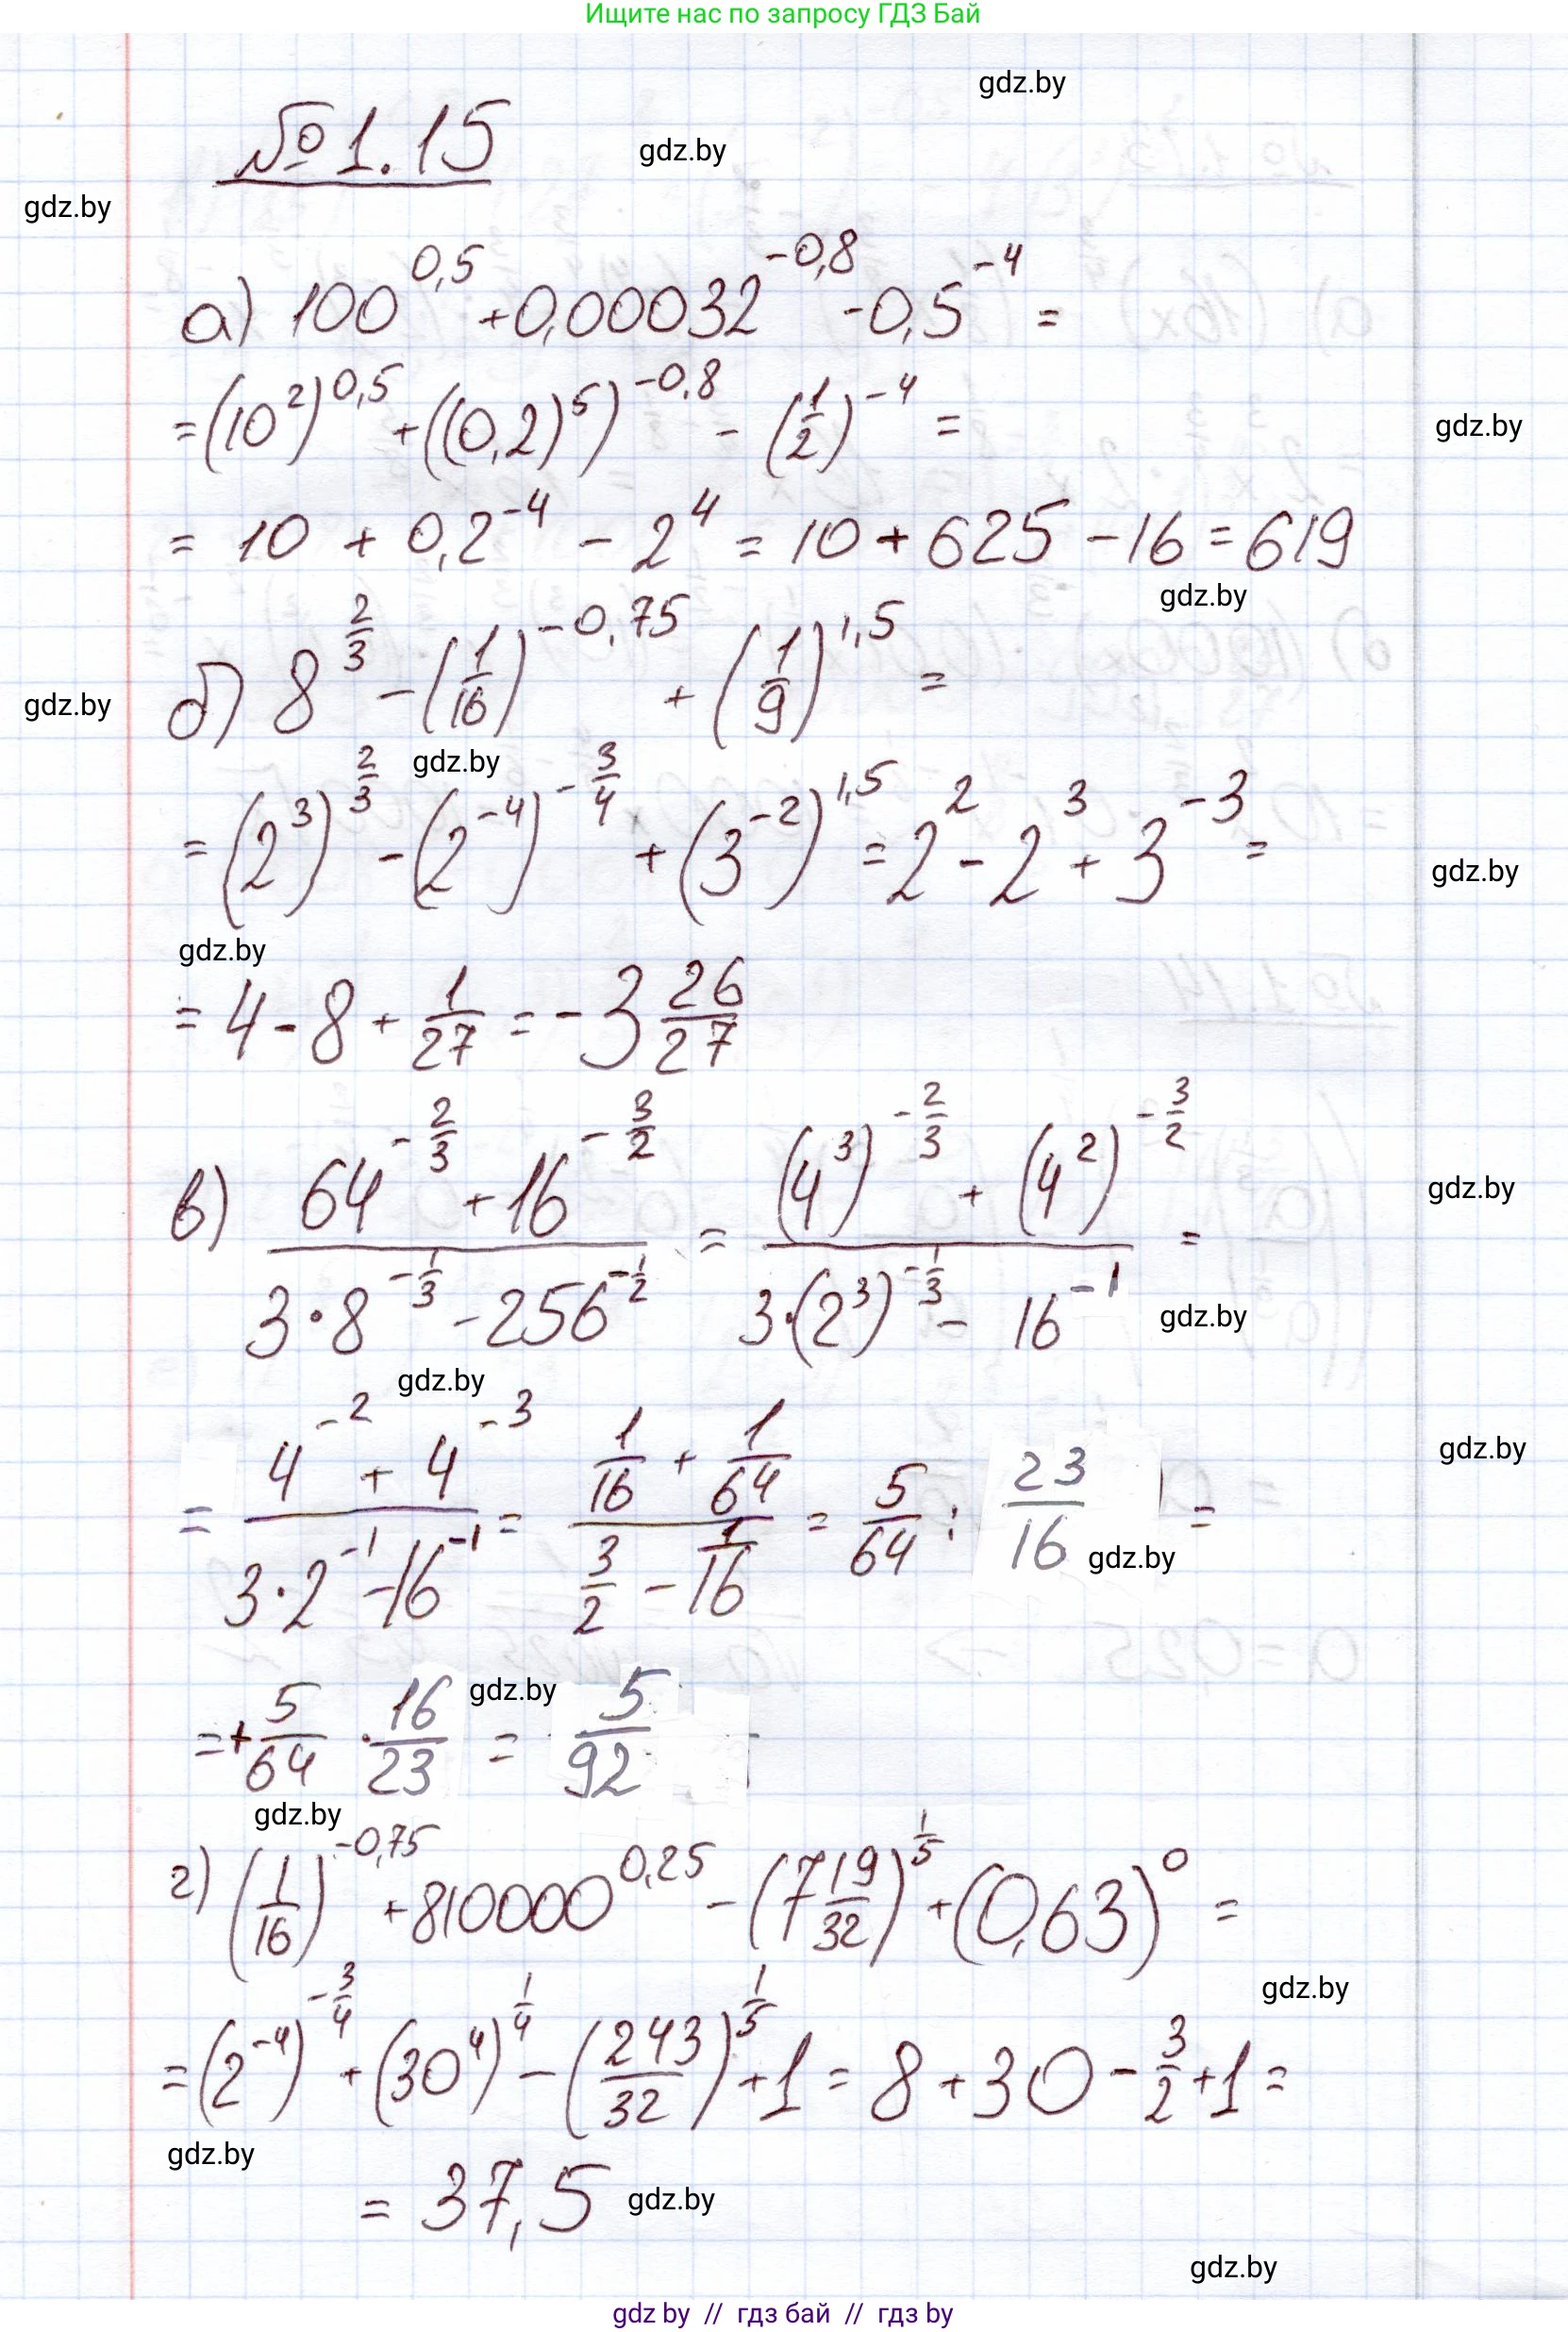 Ищите нас по запросу ГДЗ Бай
gdz.by
№ 1.15
gdz.by
gdz.by
а) 100^0,5 + 0,00032^-0,8 - 0,5^-4 =
= (10^2)^0,5 + ((0,2)^5)^-0,8 - (1/2)^-4 =
gdz.by
= 10 + 0,2^-4 - 2^4 = 10 + 625 - 16 = 619
gdz.by
б) 8^(2/3) - (1/16)^-0,75 + (1/9)^1,5 =
gdz.by
gdz.by
= (2^3)^(2/3) - (2^-4)^(-3/4) + (3^-2)^1,5 = 2^2 - 2^3 + 3^-3 =
gdz.by
gdz.by
= 4 - 8 + 1/27 = -3 26/27
в) (64^(-2/3) + 16^(-3/2)) / (3·8^(-1/3) - 256^(-1/2)) = ((4^3)^(-2/3) + (4^2)^(-3/2)) / (3·(2^3)^(-1/3) - 16^-1) =
gdz.by
gdz.by
gdz.by
= (4^-2 + 4^-3) / (3·2^-1 - 16^-1) = (1/16 + 1/64) / (3/2 - 1/16) = 5/64 : 23/16 =
gdz.by
gdz.by
= + 5/64 · 16/23 = 5/92
gdz.by
gdz.by
г) (1/16)^-0,75 + 810000^0,25 - (7 19/32)^(1/5) + (0,63)^0 =
gdz.by
= (2^-4)^(-3/4) + (30^4)^(1/4) - (243/32)^(1/5) + 1 = 8 + 30 - 3/2 + 1 =
gdz.by
= 37,5
gdz.by
gdz.by
gdz by // гдз бай // гдз by